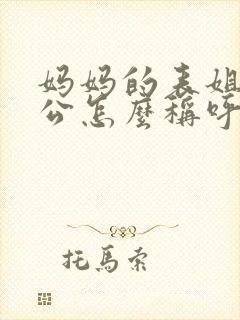 妈妈的表姐
公怎麼稱呼
托馬索